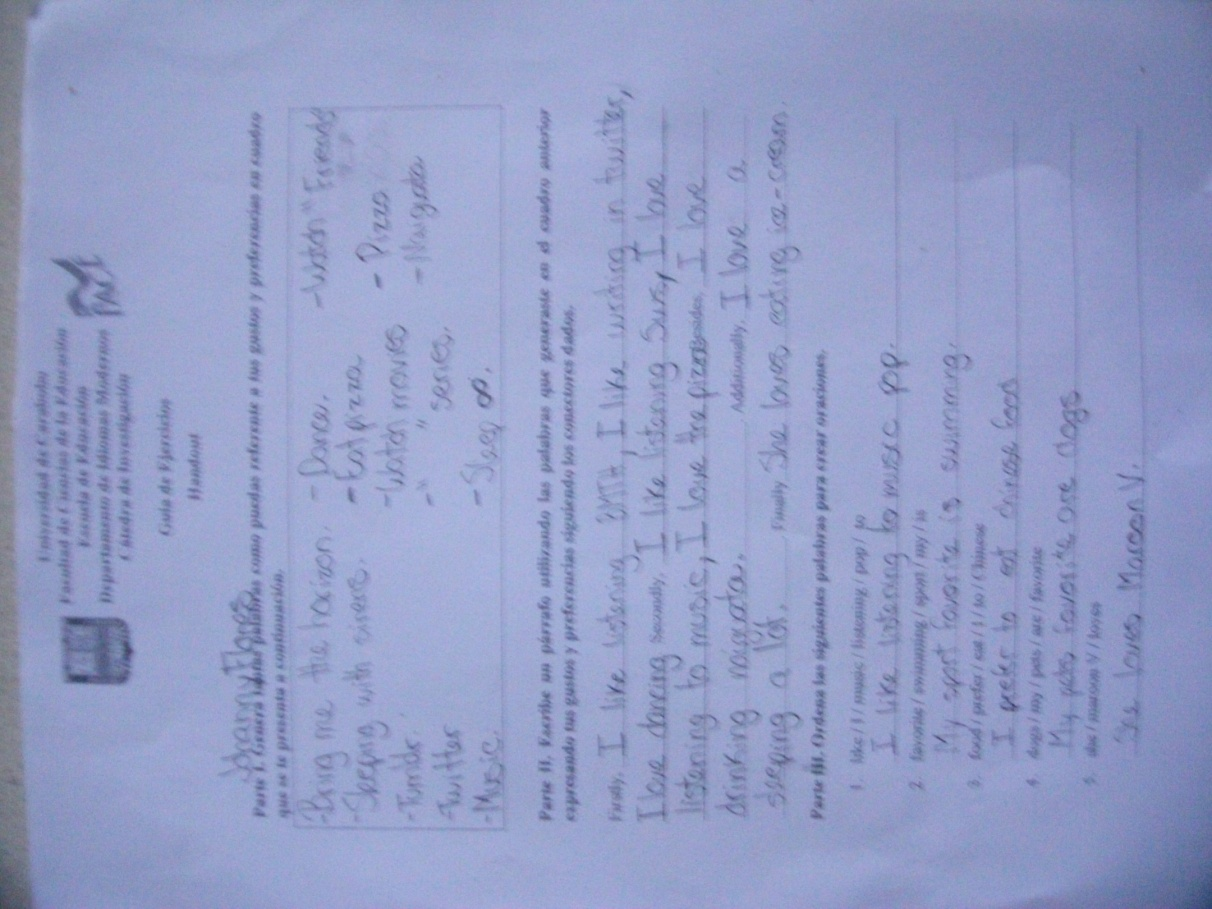 Universidad de Carabobo
Facultad de Ciencias de la Educación
Escuela de Educación
Departamento de Idiomas Modernos
Cátedra de Investigación
FACE
Guía de Ejercicios
Handout
Flores
Parte I. Genera tantas palabras como puedas referente a tus gustos y preferencias en cuadro
que se te presenta a continuación.
-Bring me the horizon. - Dance. -Watch "Friends"
-Sleeping with sirens. - Eat pizza - Pizza
-Tumblr. -Watch movies - Naiguata
-Twitter -" " series.
-Music. - Sleep ∞.
Parte II. Escribe un párrafo utilizando las palabras que generaste en el cuadro anterior
expresando tus gustos y preferencias siguiendo los conectores dados.
Firstly, I like listening BMTH, I like writing in twitter,
I love dancing Secondly, I like listening Sws, I love
listening to music, I love the pizza Besides, I love
drinking naiguata. Additionally, I love a
sleeping a lot. Finally She loves eating ice-cream.
Parte III. Ordena las siguientes palabras para crear oraciones.
1. like / I / music / listening / pop / to
I like listening to music pop.
2. favorite / swimming / sport / my / is
My sport favorite is swimming.
3. food / prefer / eat / I / to / Chinese
I prefer to eat chinese food
4. dogs / my / pets / are / favorite
My pets favorite are dogs
5. she / maroon V / loves
She loves Maroon V.